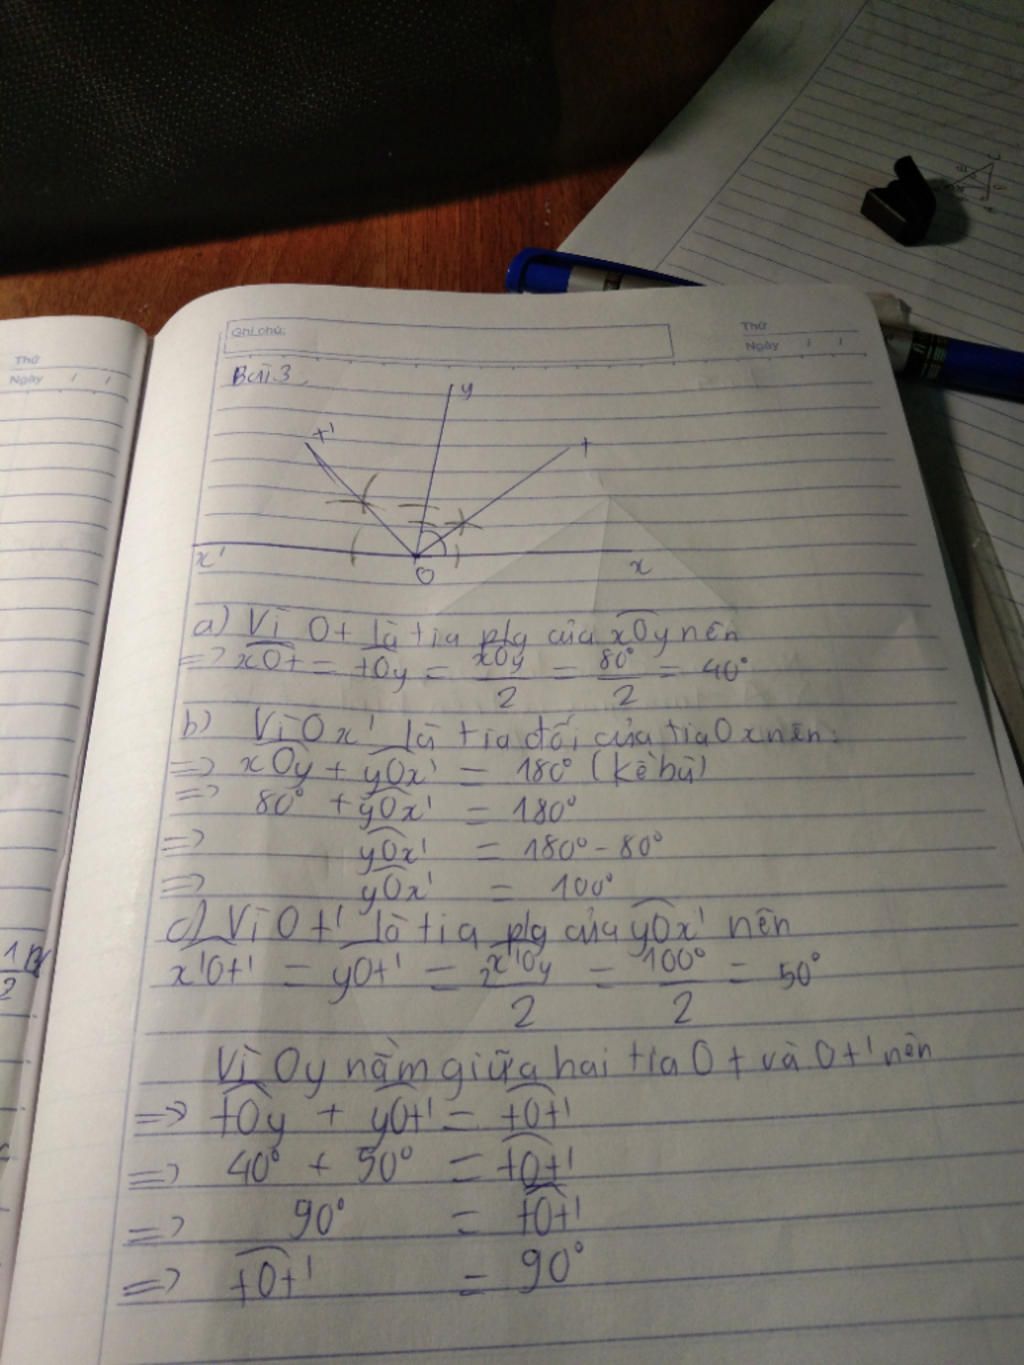 Thứ
Ngày / /
Ghi chú:
Thứ
Ngày / /
Bài 3.
y
t'
t
x'
O
x
a) Vì Ot là tia p/g của xOy nên
=> xOt = tOy = xOy/2 = 80°/2 = 40°
b) Vì Ox' là tia đối của tia Ox nên:
=> xOy + yOx' = 180° (kề bù)
=> 80° + yOx' = 180°
=> yOx' = 180° - 80°
=> yOx' = 100°
c) Vì Ot' là tia p/g của yOx' nên
x'Ot' = yOt' = x'Oy/2 = 100°/2 = 50°
Vì Oy nằm giữa hai tia Ot và Ot' nên
=> tOy + yOt' = tOt'
=> 40° + 50° = tOt'
=> 90° = tOt'
=> tOt' = 90°